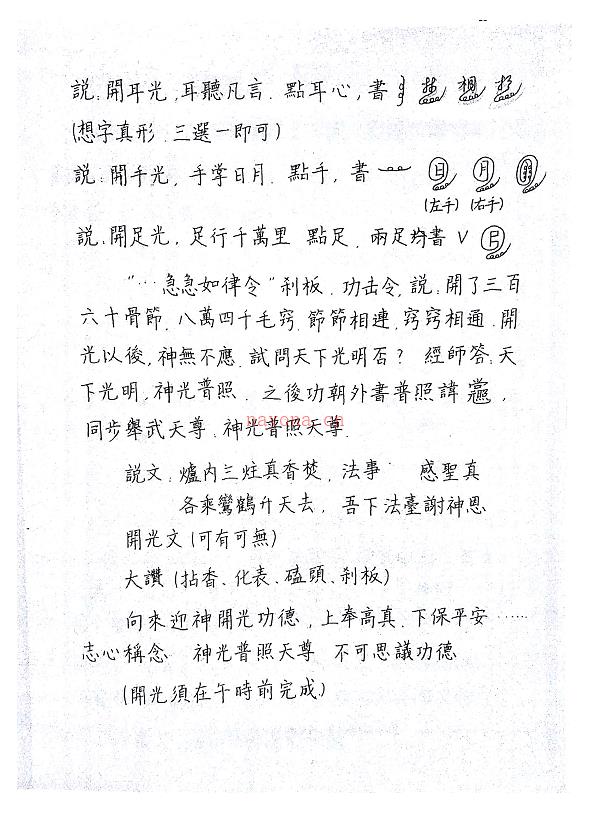 説:開耳光,耳聽凡言.點耳心,書
(想字真形.三選一即可)
説:開手光,手掌日月.點手,書 日 月
(左手) (右手)
説:開足光,足行千萬里 點足.兩足均書
"…急急如律令"刹板.功击令,説:開了三百
六十骨節.八萬四千毛窍.節節相連,窍窍相通.開
光以後,神無不應.試問天下光明否? 經師答:天
下光明,神光普照.之後功朝外書普照諱,
同步舉武天尊:神光普照天尊.
nayona.cn
説文:爐内三炷真香焚,法事 感聖真
各乘鸞鶴升天去,吾下法臺謝神恩
開光文(可有可無)
大讚(拈香、化表、磕頭、刹板)
向來迎神開光功德,上奉高真.下保平安……
志心稱念 神光普照天尊 不可思議功德
(開光須在午時前完成)